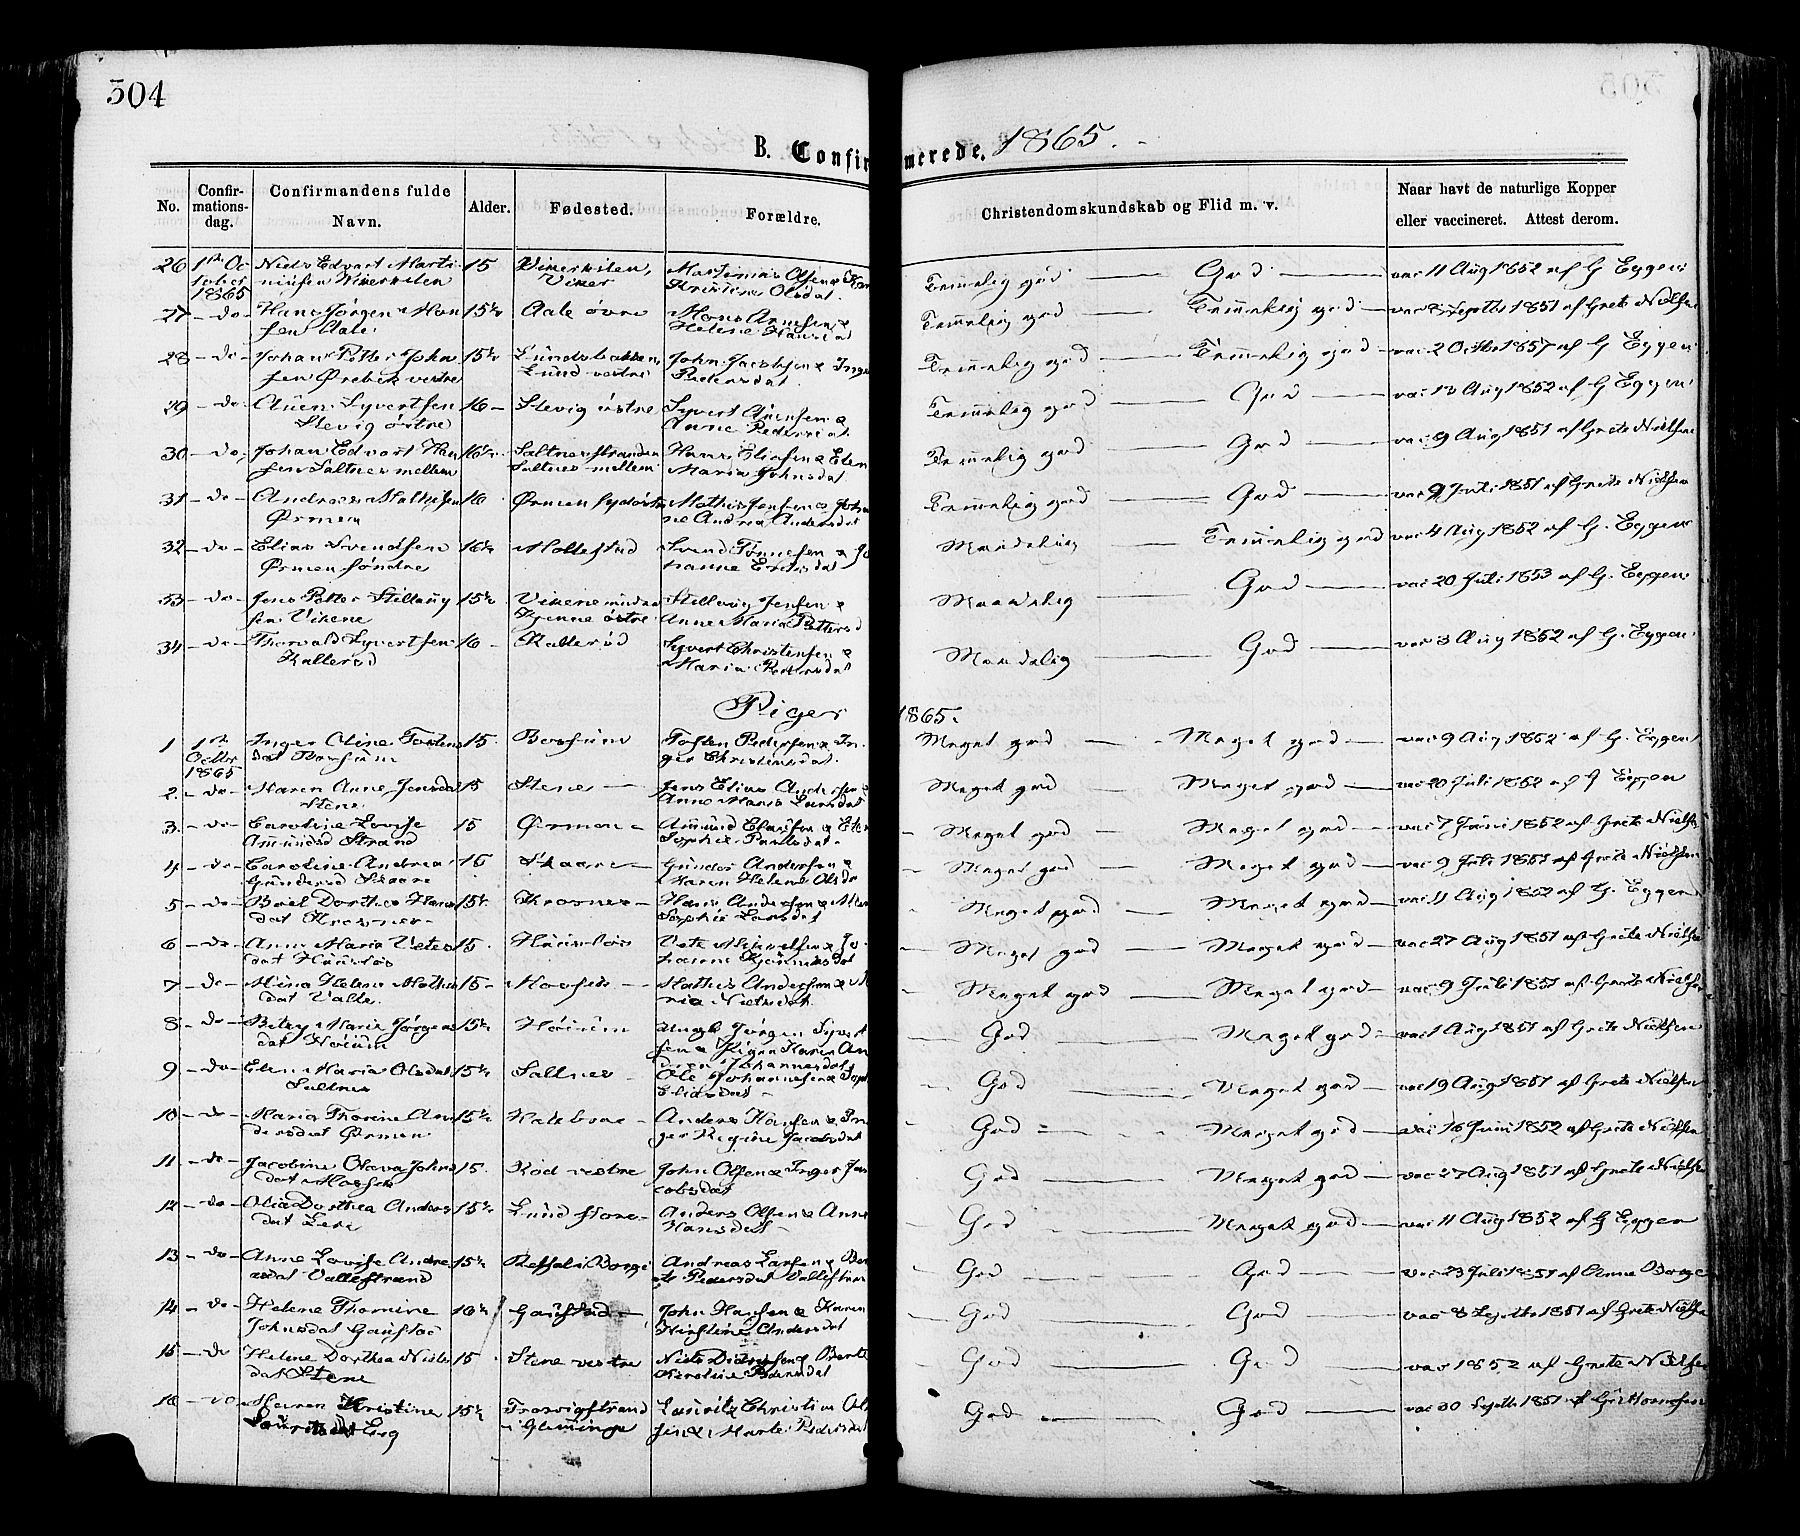 304
B. Confirmerede. 1865.
No. Confirmationsdag. Confirmandens fulde Navn. Alder. Fødested. Forældre. Christendomskundskab og Flid m. v. Naar havt de naturlige Kopper eller vaccineret. Attest derom.
26 1ste October 1865 Niels Edvart Martiniusen Vikerkilen 15 Vikerkilen, Viker Martinius Olsen & Kristine Olsdat. Temmelig god God vac 11 Aug 1852 af G Eggen
27 do Hans Jørgen Hansen Aale 15½ Aale øvre Hans Arnesen & Helene Hansdat Temmelig god Temmelig god vac 8 Septb 1851 af Grete Nielsen
28 do Johan Petter Johnsen Ørebek vestre 15½ Lundsbakken, Lund vestre John Jacobsen & Inger Pedersdat. Temmelig god Temmelig god vac 2 Octbr 1857 af G Eggen
29 do Auen Syvertsen Slevig østre 16 Slevig østre Syvert Auensen & Anne Pedersdat. Temmelig god God vac 13 Aug 1852 af G Eggen
30 do Johan Edvart Hansen Saltnes mellem 16½ Saltnesstranden Saltnes mellem Hans Eliasen & Elen Maria Johnsdat Temmelig god God vac 9 Aug 1851 af Grete Nielsen
31 do Andreas Mathisen Ørmen 16 Ørmen sydøstre Mathis Jensen & Johanne Andrea Andersdat Temmelig god God vac 9 Juli 1851 af Grete Nielsen
32 do Elias Svendsen Ørmen søndre 16½ Mollestad Svend Tønnesen & Johanne Ersdat Maadelig Temmelig god vac 4 Aug 1852 af G. Eggen
33 do Jens Petter Stillaugsen Vikene 15½ Vikene Kjenne østre Stillaug Jensen & Anne Maria Pettersd Maadelig God vac 20 Juli 1853 af G. Eggen
34 do Thorvald Syvertsen Kallerød 16 Kallerød Syvert Christensen & Maria Pedersdat Maadelig God vac 3 Aug 1852 af G. Eggen
Piger 1865.
1 1ste Octbr 1865 Inger Oline Tostensdat Borsum 15 Borsum Tosten Pedersen & Inger Christinsdat. Meget god Meget god vac 9 Aug 1852 af G. Eggen
2. do Maren Anne Jensdat Stene 15 Stene Jens Elias Andersen & Anne Maria Larsdat Meget god Meget god vac 20 Juli 1852 af G Eggen
3. do Caroline Lovise Amundsd Strand 15 Ørmen Amund Eliassen & Elen Sophie Paulsdat. Meget god Meget god vac 7 Juni 1852 af Grete Nielsen
4 do Caroline Andrea Gundersd Skaare 15 Skaare Gunder Andersen & Karen Helene Olsda Meget god Meget god vac 9 Juli 1851 af Grete Nielsen
5 do Boel Dorthea Hansdat 15½ Hans Andersen & Sophie Larsdat Meget god Meget god vac 11 Aug 1852 af G. Eggen
6 do Anne Maria Vetesdat Hunslos 15 Hunslos Vete Mikkelsen & Johanne Meget god Meget god vac 27 Aug 1851 af Grete Nielsen
7 do Mina Helene Mathisdat Valle 15 Mathis Andersen & Maria Nielsdat. Meget god Meget god vac 9 Juli 1851 af Grete Nielsen
8 do Betzy Marie Jørgensdat Høium 15½ Høium Ungk Jørgen Syvertsen & Pigen Karen Andrea Johannesdat God Meget god vac 1 Aug 1851 af Grete Nielsen
9 do Elen Maria Olesdat Saltnes 15½ Saltnes Ole Johannesen & Sop Eliasdat God Meget god vac 19 Aug 1851 af Grete Nielsen
10 do Maria Thorine Andersdat Ørmen 15½ Anders Hansen & Inger Regine Jacobsdat God Meget god vac 16 Juni 1852 af Grete Nielsen
11 do Jacobine Olava Johnsdat 15. Rød vestre John Olsen & Inger Jacobsdat God Meget god vac 27 Aug 1851 af Grete Nielsen
12 do Olia Dorthea Andersdat Lere 15½ Lund store Anders Olsen & Anne Hansdat God Meget god vac 11 Aug 1852 af G Eggen
13 do Anne Lovisse Andreasdat Vallestrand 15½ Borge Andreas Larsen & Berte Pedersdat Vallestran God God vac 23 Juli 1851 af Anne Borge
14 do Helene Thomine Johnsdat Gaustad 16½ Gaustad John Hansen & Karen Kirstine Andersdat God God vac 8 Septbr 1851 af Grete Nielsen
15 do Helene Dorthea Nielsdat Stene 15 Stene vestre Niels Didrichsen & Berte Karoline Pedersdat God God vac 1852 af Grete Nielsen
16 do Maren Kristine Lauritsdat Eeg 15½ Torsvigstrand i Glemminge Lauritz Christian Olsen & Marte Pedersdat God God vac 30 Septb 1851 af